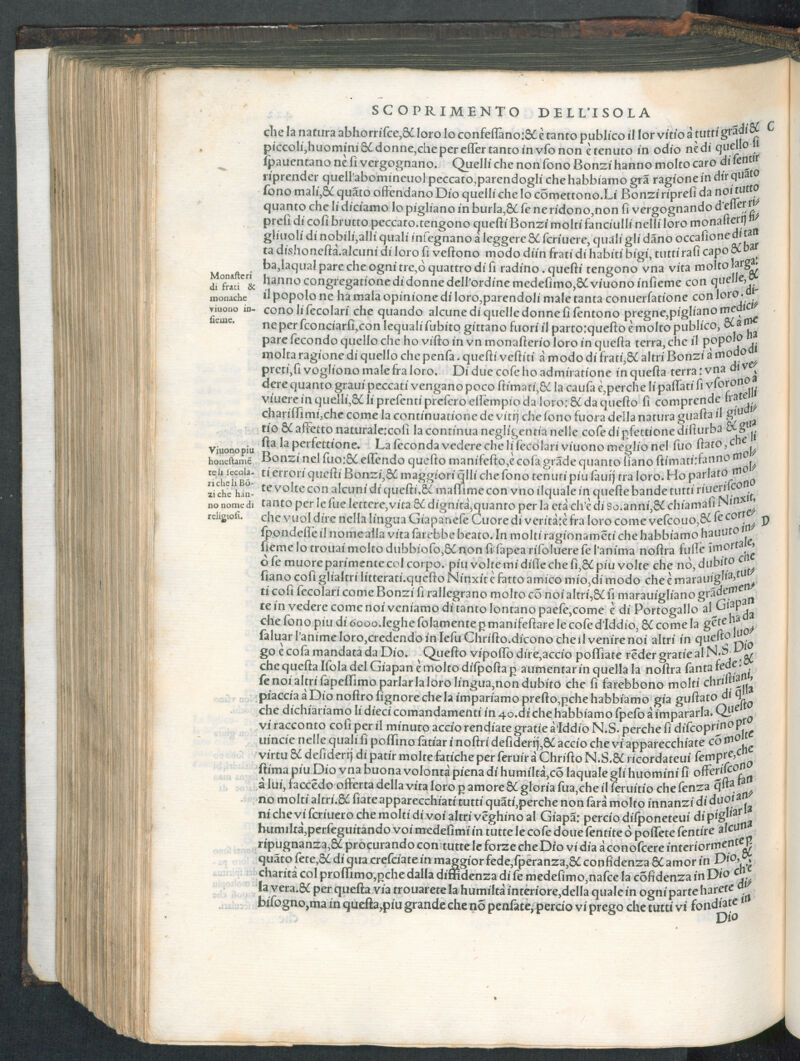 SCOPRIMENTO DELL'ISOLA
che la natura abhorriſce,& loro lo confeſſano:& è tanto publico il lor vitio à tutti grãdi & C
piccoli,huomini & donne,che per eſſer tanto in vſo non è tenuto in odio nè di quello ſi
ſpauentano nè ſi vergognano. Quelli che non ſono Bonzi hanno molto caro di ſentir
riprender quell'abomineuol peccato,parendogli che habbiamo grã ragione in dir quãto
ſono mali,& quãto offendano Dio quelli che lo cõmettono.Li Bonzi ripreſi da noi tutto
quanto che li diciamo lo pigliano in burla,& ſe ne ridono,non ſi vergognando d'eſſer ri⸗
preſi di coſi brutto peccato.tengono queſti Bonzi molti fanciulli nelli loro monaſterij fi⸗
gliuoli di nobili,alli quali inſegnano à leggere & ſcriuere, quali gli dãno occaſione di tan
ta dishoneſtà.alcuni di loro ſi veſtono modo diin frati di habiti bigi, tutti raſi capo & bar
ba,laqual pare che ogni tre,ò quattro dì ſi radino . queſti tengono vna vita molto larga:
hanno congregatione di donne dell'ordine medeſimo,& viuono inſieme con quelle, &
il popolo ne ha mala opinione di loro,parendoli male tanta conuerſatione con loro . di-
cono li ſecolari che quando alcune di quelle donne ſi ſentono pregne,pigliano medici⸗
ne per ſconciarſi,con lequali ſubito gittano fuori il parto:queſto è molto publico, & à me
pare ſecondo quello che ho viſto in vn monaſterio loro in queſta terra, che il popolo ha
molta ragione di quello che penſa . queſti veſtiti à modo di frati,& altri Bonzi à modo di
preti,ſi vogliono male fra loro. Di due coſe ho admiratione in queſta terra : vna di ve⸗
dere quanto graui peccati vengano poco ſtimati,& la cauſa è,perche li paſſati ſi vſorono à
viuere in quelli,& li preſenti preſero eſſempio da loro: & da queſto ſi comprende fratelli
chariſſimi,che come la continuatione de vitij che ſono fuora della natura guaſta il giudi⸗
tio & affetto naturale:coſi la continua negligentia nelle coſe di pfettione diſturba & gua
ſta la perfettione. La ſeconda vedere che li ſecolari viuono meglio nel ſuo ſtato , che li
Bonzi nel ſuo:& eſſendo queſto manifeſto,è coſa grãde quanto ſiano ſtimati:fanno mol⸗
ti errori queſti Bonzi,& maggiori q̃lli che ſono tenuti piu ſauij tra loro. Ho parlato mol⸗
te volte con alcuni di queſti,& maſſime con vno ilquale in queſte bande tutti riueriſcono
tanto per le ſue lettere,vita & dignità,quanto per la età ch'è di 80.anni,& chiamaſi Ninxit,
che vuol dire nella lingua Giapaneſe Cuore di verità:è fra loro come veſcouo,& ſe corre⸗ D
ſpondeſſe il nome alla vita ſarebbe beato. In molti ragionamẽti che habbiamo hauuto in⸗
ſieme lo trouai molto dubbioſo,& non ſi ſapea riſoluere ſe l'anima noſtra fuſſe ĩmortale,
ò ſe muore parimente col corpo. piu volte mi diſſe che ſi,& piu volte che nò, dubito che
ſiano coſi gli altri litterati.queſto Ninxit è fatto amico mio,di modo che è marauiglia,tut⸗
ti coſi ſecolari come Bonzi ſi rallegrano molto cõ noi altri,& ſi marauigliano grãdemen⸗
te in vedere come noi veniamo di tanto lontano paeſe,come è di Portogallo al Giapan
che ſono piu di 6000.leghe ſolamente p manifeſtare le coſe d'Iddio, & come la gẽte ha da
ſaluar l'anime loro,credendo in Ieſu Chriſto.dicono che il venire noi altri in queſto luo⸗
go è coſa mandata da Dio. Queſto vi poſſo dire,accio poſſiate rẽder gratie al N.S. Dio
che queſta Iſola del Giapan è molto diſpoſta p aumentar in quella la noſtra ſanta fede : &
ſe noi altri ſapeſſimo parlar la loro lingua,non dubito che ſi farebbono molti chriſtiani,
piaccia à Dio noſtro ſignore che la impariamo preſto,pche habbiamo gia guſtato di q̃lla
che dichiariamo li dieci comandamenti in 40.dì che habbiamo ſpeſo à impararla. Queſto
vi racconto coſi per il minuto accio rendiate gratie à Iddio N.S. perche ſi diſcoprino pro
uincie nelle quali ſi poſſino ſatiar i noſtri deſiderij,& accio che vi apparecchiate cõ molte
virtu & deſiderij di patir molte fatiche per ſeruir à Chriſto N.S.& ricordateui ſempre,che
ſtima piu Dio vna buona volontà piena di humiltà,cõ laquale gli huomini ſi offeriſcono
à lui, faccẽdo offerta della vita loro p amore & gloria ſua,che il ſeruitio che ſenza q̃ſta fan
no molti altri.& ſiate apparecchiati tutti quãti,perche non ſarà molto innanzi di duoi an⸗
ni che vi ſcriuero che molti di voi altri vẽghino al Giapã: percio diſponeteui di pigliar la
humiltà,perſeguitando voi medeſimi in tutte le coſe doue ſentite ò poſſete ſentire alcuna
ripugnanza,& procurando con tutte le forze che Dio vi dia à conoſcere interiormente p
quãto ſete,& di qua creſciate in maggior fede,ſperanza,& confidenza & amor in Dio, &
charità col proſſimo,pche dalla diffidenza di ſe medeſimo,naſce la cõfidenza in Dio ch'è
la vera.& per queſta via trouarete la humiltà interiore,della quale in ogni parte harete di⸗
biſogno,ma in queſta,piu grande che nõ penſate, percio vi prego che tutti vi fondiate in
Dio
Monaſteri
di frati &
monache
viuono in-
ſieme.
Viuono piu
honeſtamẽ
te li ſecola-
ri che li Bõ-
zi che han-
no nome di
religioſi.